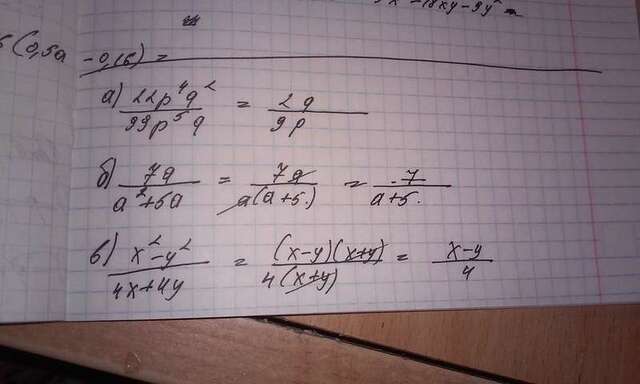 x² - 18xy - 9y² =
(0,5a - 0,1б) =
а) 22p⁴q² / 99p⁵q = 2q / 9p
б) 7a / a²+5a = 7a / a(a+5.) = 7 / a+5.
в) x²-y² / 4x+4y = (x-y)(x+y) / 4(x+y) = x-y / 4